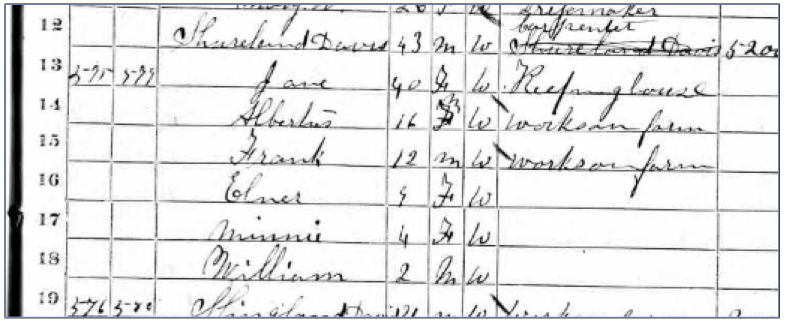 dressmaker
carpenter
12 Shureland Davis 43 m W Shureland Davis 5200
13 575 579 Jane 40 F W Keeping house
14 Albertus 16 M W works on farm
15 Frank 12 m W works on farm
16 Elner 9 F W
17 Minnie 4 F W
18 William 2 M W
19 576 580 Davis m W